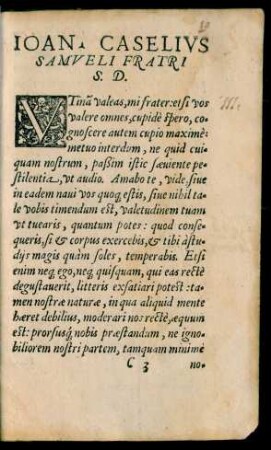 IOAN. CASELIVS
SAMVELI FRATRI
S. D.
VTinã valeas, mi frater: etsi vos
valere omnes, cupidè spero, co-
gnoscere autem cupio maximè:
metuo interdum, ne quid cui-
quam nostrum, paßim istic sæuiente pe-
stilentia, vt audio. Amabo te, vide, siue
in eadem naui vos quoq; estis, siue nihil ta-
le vobis timendum est, valetudinem tuam
vt tuearis, quantum potes: quod conse-
queris, si & corpus exercebis, & tibi à stu-
dijs magis quàm soles, temperabis. Etsi
enim neq; ego, neq; quisquam, qui eas rectè
degustauerit, litteris exsatiari potest: ta-
men nostræ naturæ, in qua aliquid mente
hæret debilius, moderari nos rectè, æquum
est: prorsusq; nobis præstandum, ne igno-
biliorem nostri partem, tamquam minimè
C 3 no-